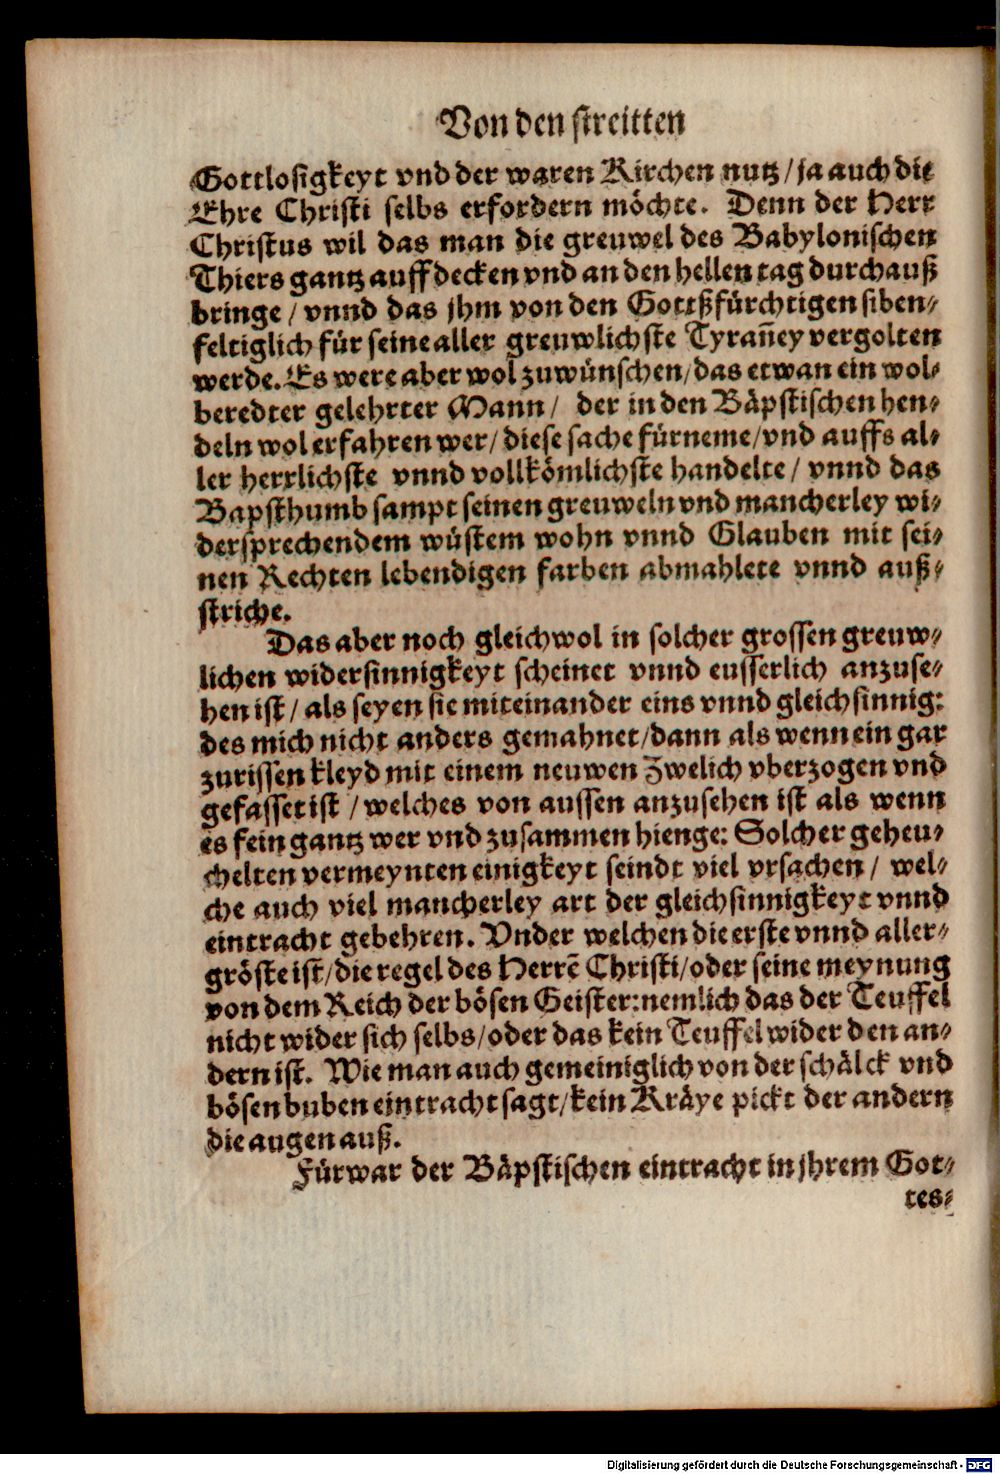 Von den streitten
Gottlosigkeyt vnd der waren Kirchen nutz / ja auch die
Ehre Christi selbs erfordern möchte. Denn der Herr
Christus wil das man die greuwel des Babylonischen
Thiers gantz auffdecken vnd an den hellen tag durchauß
bringe / vnnd das jhm von den Gottßfürchtigen siben-
feltiglich für seine aller greuwlichste Tyrañey vergolten
werde. Es were aber wol zu wünschen / das etwan ein wol-
beredter gelehrter Mann / der in den Bäpstischen hen-
deln wol erfahren wer / diese sache fürneme / vnd auffs al-
ler herrlichste vnnd vollkömlichste handelte / vnnd das
Bapsthumb sampt seinen greuweln vnd mancherley wi-
dersprechendem wüstem wohn vnnd Glauben mit sei-
nen Rechten lebendigen farben abmahlete vnnd auß-
striche.
Das aber noch gleichwol in solcher grossen greuw-
lichen widersinnigkeyt scheinet vnnd eusserlich anzuse-
hen ist / als seyen sie miteinander eins vnnd gleichsinnig:
des mich nicht anders gemahnet / dann als wenn ein gar
zurissen kleyd mit einem neuwen Zwelich vberzogen vnd
gefasset ist / welches von aussen anzusehen ist als wenn
es fein gantz wer vnd zusammen hienge: Solcher geheu-
chelten vermeynten einigkeyt seindt viel vrsachen / wel-
che auch viel mancherley art der gleichsinnigkeyt vnnd
eintracht gebehren. Vnder welchen die erste vnnd aller-
gröste ist / die regel des Herrē Christi / oder seine meynung
von dem Reich der bösen Geister: nemlich das der Teuffel
nicht wider sich selbs / oder das kein Teuffel wider den an-
dern ist. Wie man auch gemeiniglich von der schälck vnd
bösen buben eintracht sagt / kein Kräye pickt der andern
die augen auß.
Fürwar der Bäpstischen eintracht in jhrem Got-
tes-
Digitalisierung gefördert durch die Deutsche Forschungsgemeinschaft - DFG